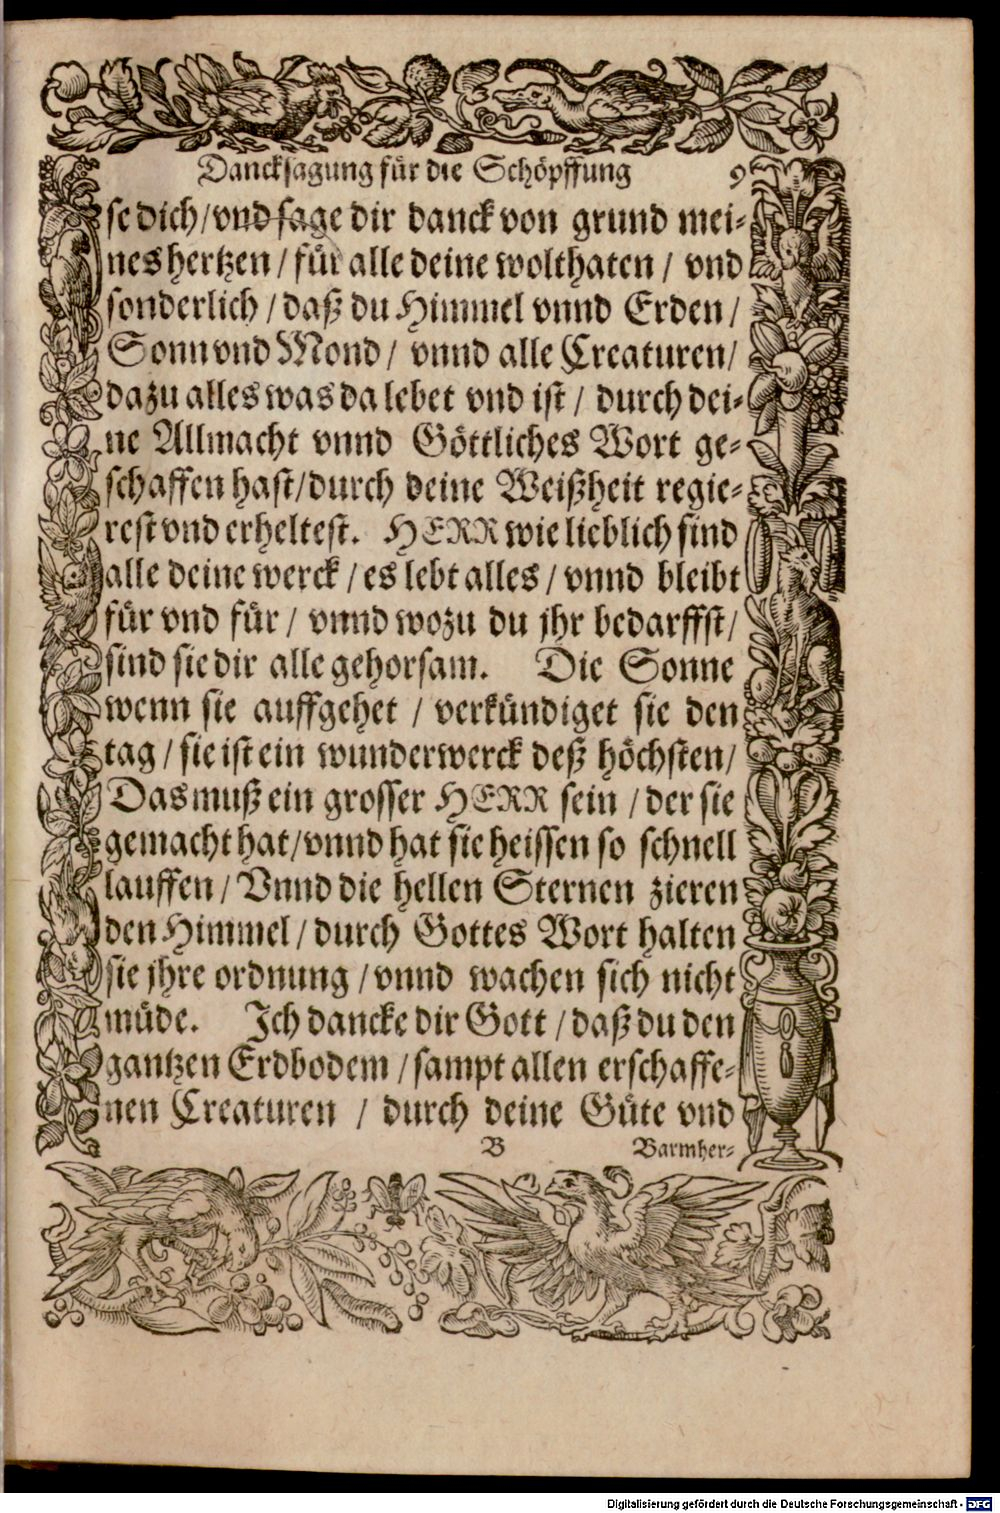 Dancksagung für die Schöpffung 9
se dich/vnd sage dir danck von grund mei-
nes hertzen / für alle deine wolthaten / vnd
sonderlich / daß du Himmel vnnd Erden /
Sonn vnd Mond / vnnd alle Creaturen/
dazu alles was da lebet vnd ist / durch dei-
ne Allmacht vnnd Göttliches Wort ge-
schaffen hast/durch deine Weißheit regie-
rest vnd erheltest. HERR wie lieblich sind
alle deine werck / es lebt alles / vnnd bleibt
für vnd für / vnnd wozu du jhr bedarffst/
sind sie dir alle gehorsam. Die Sonne
wenn sie auffgehet / verkündiget sie den
tag / sie ist ein wunderwerck deß höchsten/
Das muß ein grosser HERR sein / der sie
gemacht hat/vnnd hat sie heissen so schnell
lauffen / Vnnd die hellen Sternen zieren
den Himmel / durch Gottes Wort halten
sie jhre ordnung / vnnd wachen sich nicht
müde. Ich dancke dir Gott / daß du den
gantzen Erdbodem / sampt allen erschaffe-
nen Creaturen / durch deine Güte vnd
B Barmher-
Digitalisierung gefördert durch die Deutsche Forschungsgemeinschaft - DFG